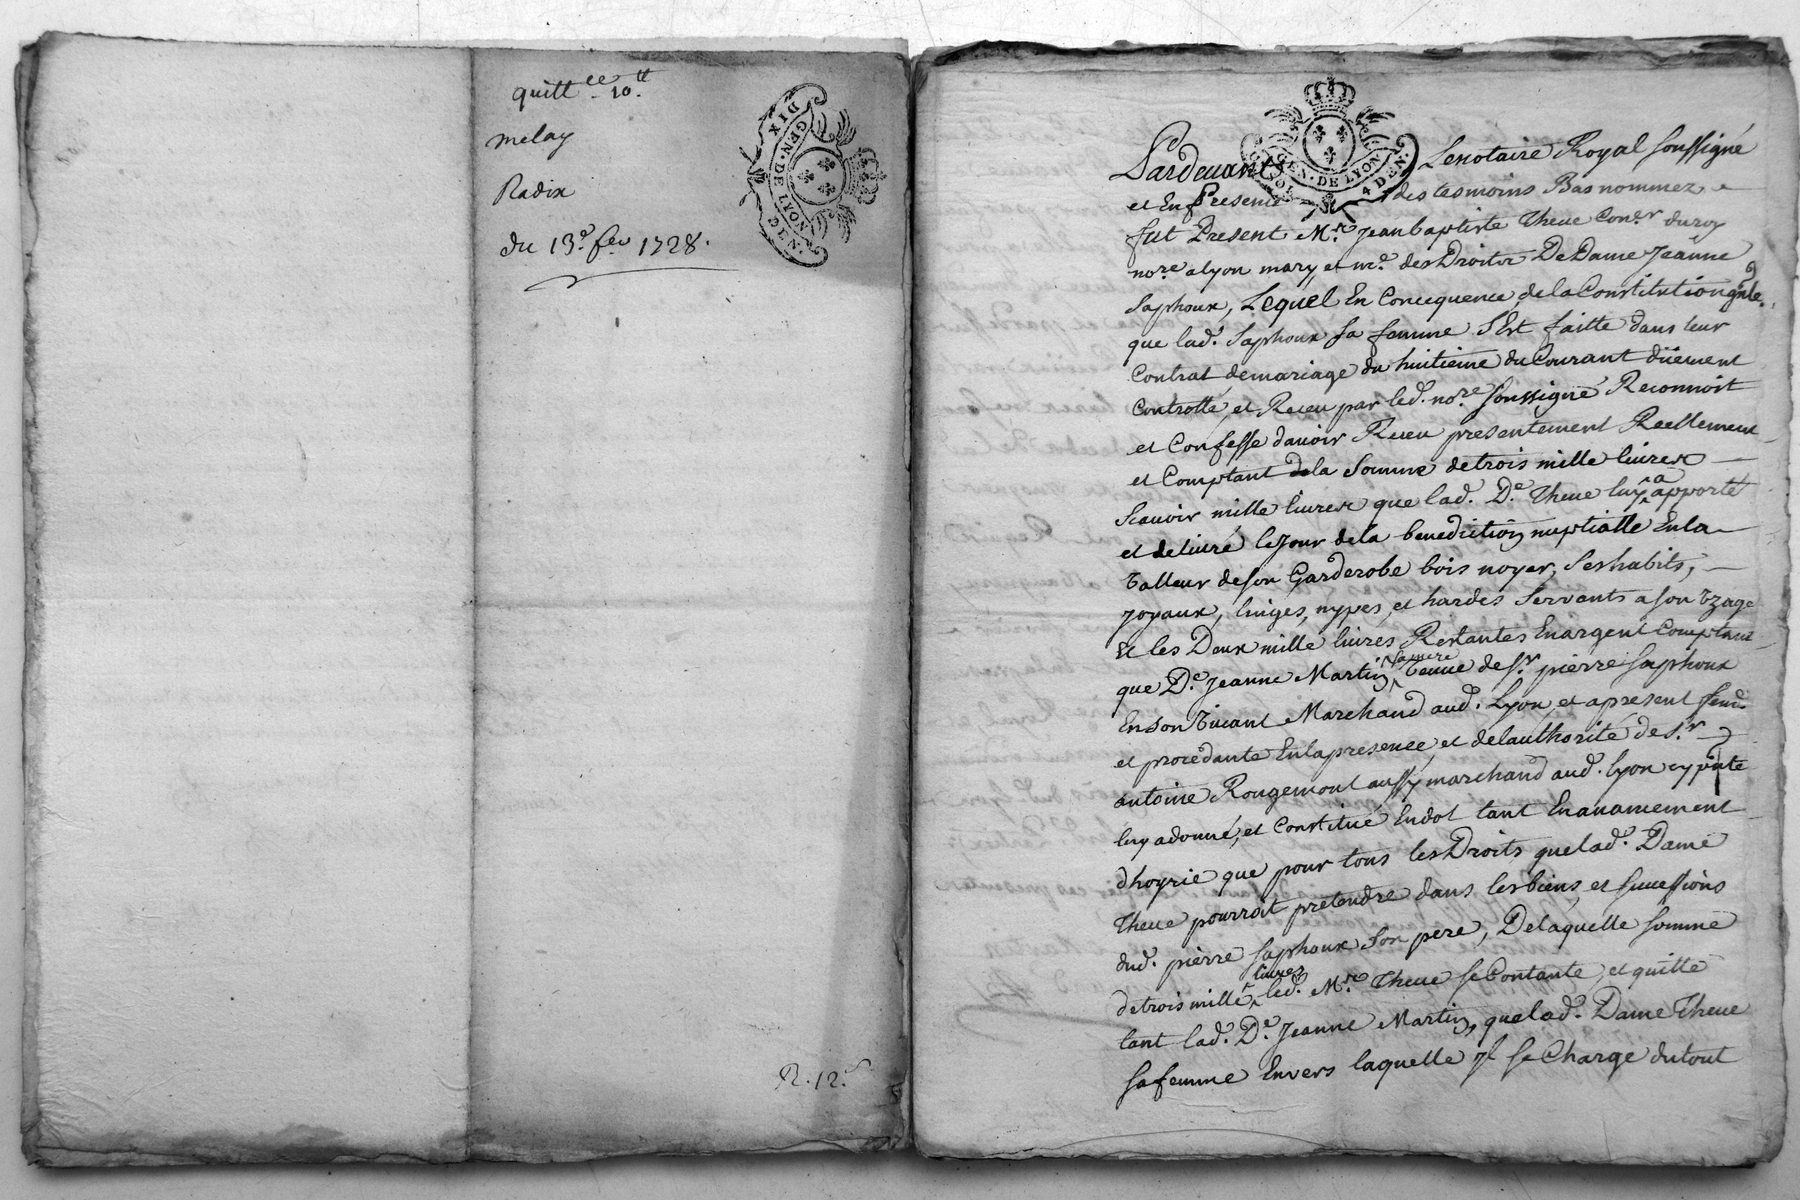 quitt.ce 10.tt
melay
Radix
du 13.e fev 1728.
DIX
GEN. DE LYON
DEN.
R. 12.s
GEN. DE LYON
SOL
4 DEN.
Pardevant Le notaire Royal soussigné
et En Presence des tesmoins Bas nommez
fut Present M.re Jean baptiste Theve Con.er du roy
no.re a lyon mary et m.e des Droits De Dame Jeanne
Saphoux, Lequel En Concequence de la Constitution g̃nlle
que lad.e Saphoux sa femme s'Est faitte dans leur
Contrat de mariage du huitieme du Courant düement
Controllé et Receu par led. no.re soussigné Reconnoit
et Confesse d'avoir Receu presentement Reellement
et Comptant de la Somme de trois mille livres
Scavoir mille livres que lad. D.e Theve luy a apporté
et delivré le Jour de la benediction nuptialle En la
valleur de son Garderobe bois noyer, Ses habits,
Joyaux, linges, nypes, et hardes Servants a son Vzage
Et les Deux mille livres Restantes En argent Comptant
que D.e Jeanne Martin sa mere veuve de S.r pierre Saphoux
En son vivant Marchand aud. Lyon, et a present fem.
et procedante En la presence, et de l'authorité de S.r
antoine Rougemont aussy marchand aud. lyon cy p̃nte
luy a donné, et Constitué En dot tant En avancement
d'hoyrie que pour tous les Droits que lad. Dame
Theve pourroit pretendre dans les biens, et successions
dud. pierre Saphoux Son pere, De laquelle somme
de trois mille livres led. M.re Theve se Contante, et quitte
tant lad. D.e Jeanne Martin, que lad. Dame Theve
sa femme Envers laquelle Jl se Charge du tout